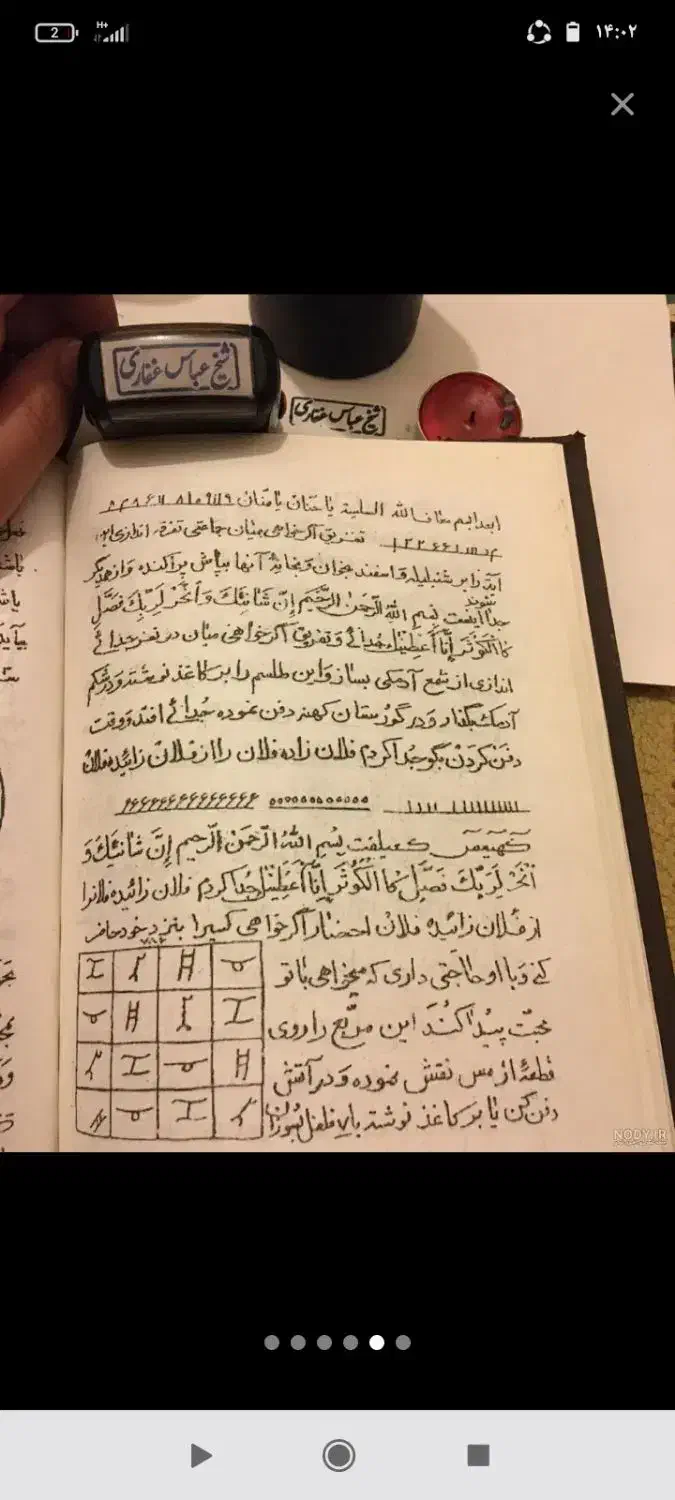 2
H+
۱۴:۰۲
شیخ عباس غفاری
شیخ عباس غفاری
یا حنان یا منان
تفریق اگر خواهی میان جماعتی تفرقه اندازی این
آیة را بر شنبلیله و اسفند بخوان و بخانهٔ آنها بپاش پراکنده و از همدیگر
شوند
جدا آیة اینست بِسمِ اللهِ الرَّحمنِ الرَّحیمِ اِنَّ شانِئَكَ وَ اَنحَر لِرَبِّكَ فَصَلِّ
الکَوثَرَ اِنّا اَعطَیناكَ جدائے و تفریق اگر خواهی میان دو نفر جدائے
اندازی از شمع آدمکی بساز و این طلسم را بر کاغذ نوشته و در شکم
آدمك بگذار و در گورستان کهنه دفن نموده جدائے افتد و وقت
دفن کردن بگو جدا کردم فلان زاده فلان را از فلان زائیده فلان
بِسمِ اللهِ الرَّحمنِ الرَّحیم اِنَّ شانِئَكَ وَ
انحَر لِرَبِّكَ فَصَلِّ الکَوثَرَ اِنّا جدا کردم فلان زائیده فلانرا
از فلان زائیده فلان احضار اگر خواهی کسیرا بنزد خود حاضر
کنے و با او حاجتی داری که میخواهی با تو
محبّت پیدا کُنَد این مربّع را روی
قطعهٔ از مس نقش نموده و در آتش
دفن کن یا بر کاغذ نوشته با فلفل بسوزان
NODY.IR